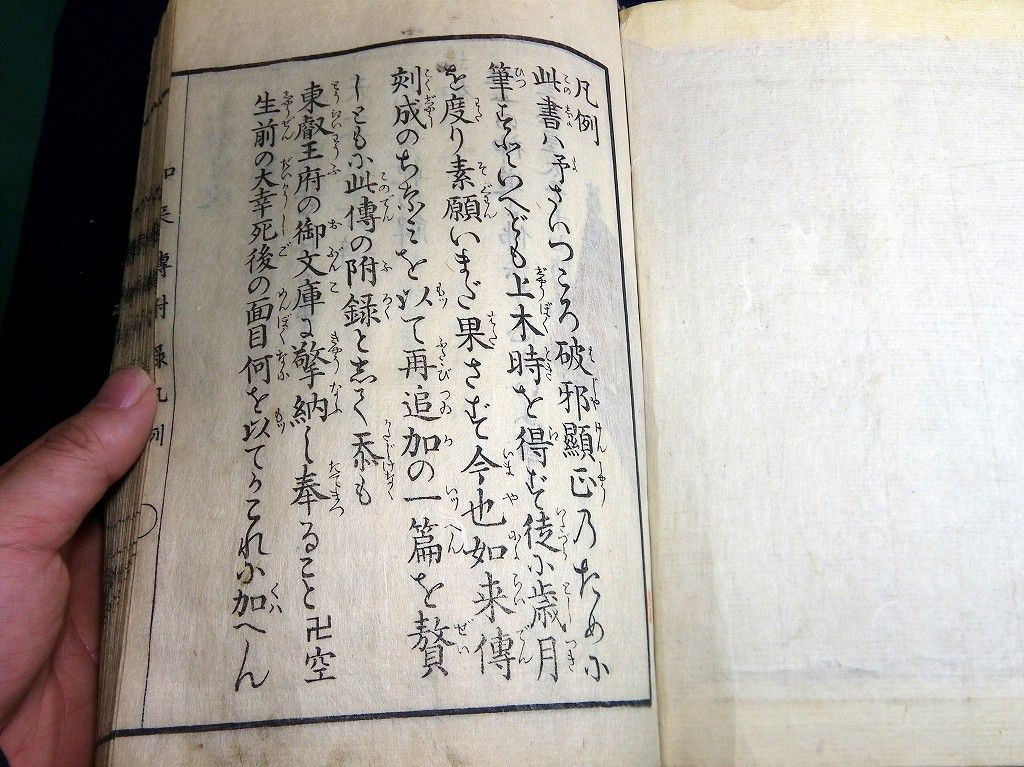 凡例
此書ハ予さいつころ破邪顕正乃ために
筆すといへども上木時を得ず徒に歳月
を度り素願いまだ果さず今也如来傳
刻成のちなミを以て再追加の一篇を贅
しともに此傳の附録と志て忝も
東叡王府の御文庫に擎納し奉ること卍空
生前の大幸死後の面目何を以てかこれに加へん
如来傳附録凡例